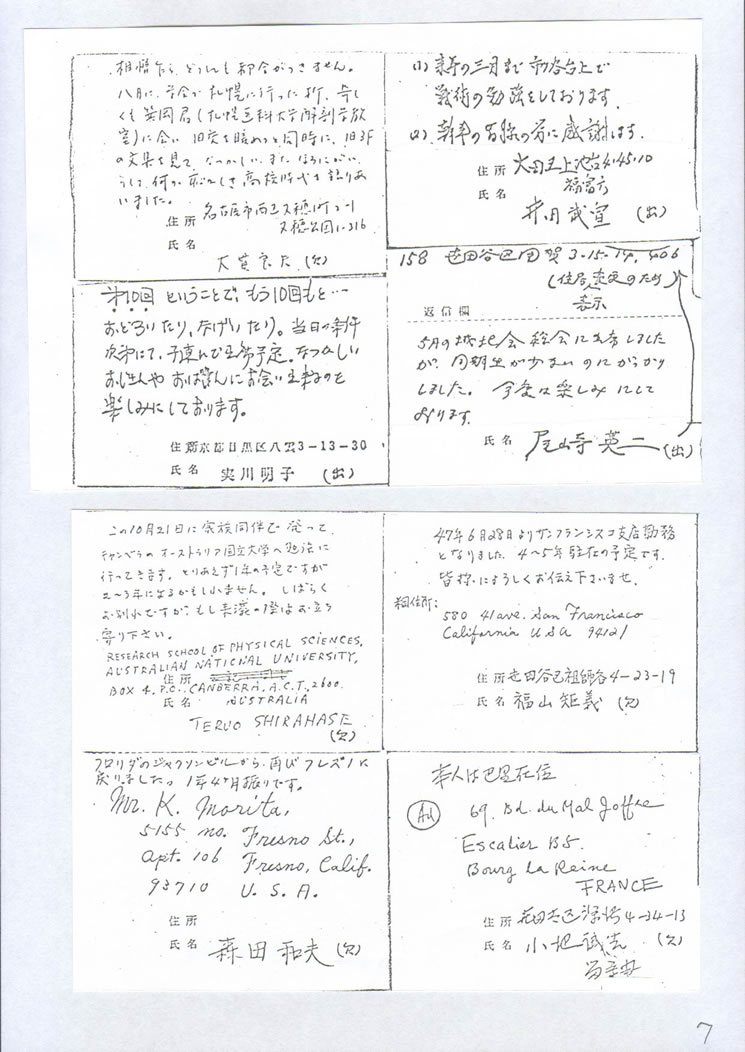 相憎ながら、どうしても都合がつきません。
八月に、学会で札幌に行った折、奇し
くも 君(札幌医科大学解剖学教
室)に会い 旧交を暖めると同時に、旧3F
の文集を見て、なつかしい、また ほろにがい、
高校時代を語りあ
いました。
住所 名古屋市
氏名
(欠)
(1) 来年の三月まで 市ヶ谷台上で
戦術の勉強をしております。
(2) 幹事の皆様の労に感謝します。
住所 大田区上池台4-45-10
氏名 井田武宣 (出)
第10回 ということで、もう10回もと…
おどろいたり、なげいたり。当日の条件
次第にて、予定。なつかしい
おじさんや おばさんにお会い出来るのを
楽しみにしております。
住所 東京都目黒区八雲3-13-30
氏名 実川明子 (出)
158 世田谷区 3-15-14, 406
(住居表示変更のため)
返信欄
5月の総会に出席しました
が、同期生が少ないのにがっかり
しました。今度は楽しみにして
おります。
氏名 尾崎英二 (出)
この10月21日に家族同伴で発って
キャンベラのオーストラリア国立大学へ勉強に
行ってきます。とりあえず1年の予定ですが
2〜3年になるかもしれません。しばらく
お別れですが、もし の際はお立ち
寄り下さい。
RESEARCH SCHOOL OF PHYSICAL SCIENCES,
AUSTRALIAN NATIONAL UNIVERSITY,
住所
BOX 4, P.O., CANBERRA, A.C.T., 2600.
氏名 AUSTRALIA
TERUO SHIRAHASE
(欠)
47年6月28日よりサンフランシスコ支店勤務
となりました。4〜5年駐在の予定です。
皆様によろしくお伝え下さいませ。
住所:
580 41 ave. San Francisco
California USA 94121
住所 世田谷区祖師谷4-23-19
氏名 福山矩義 (欠)
フロリダのジャクソンビルから、再びフレズノに
戻りました。1年4ヶ月振りです。
Mr. K. Morita,
5155 no. Fresno St.,
apt. 106 Fresno, Calif.
93710 U. S. A.
住所
氏名 森田和夫 (欠)
本人は巴里在住
69. Bd. du Mal Joffre
Escalier B5.
Bourg La Reine
FRANCE
住所 4-34-13
氏名 小池 (欠)
7